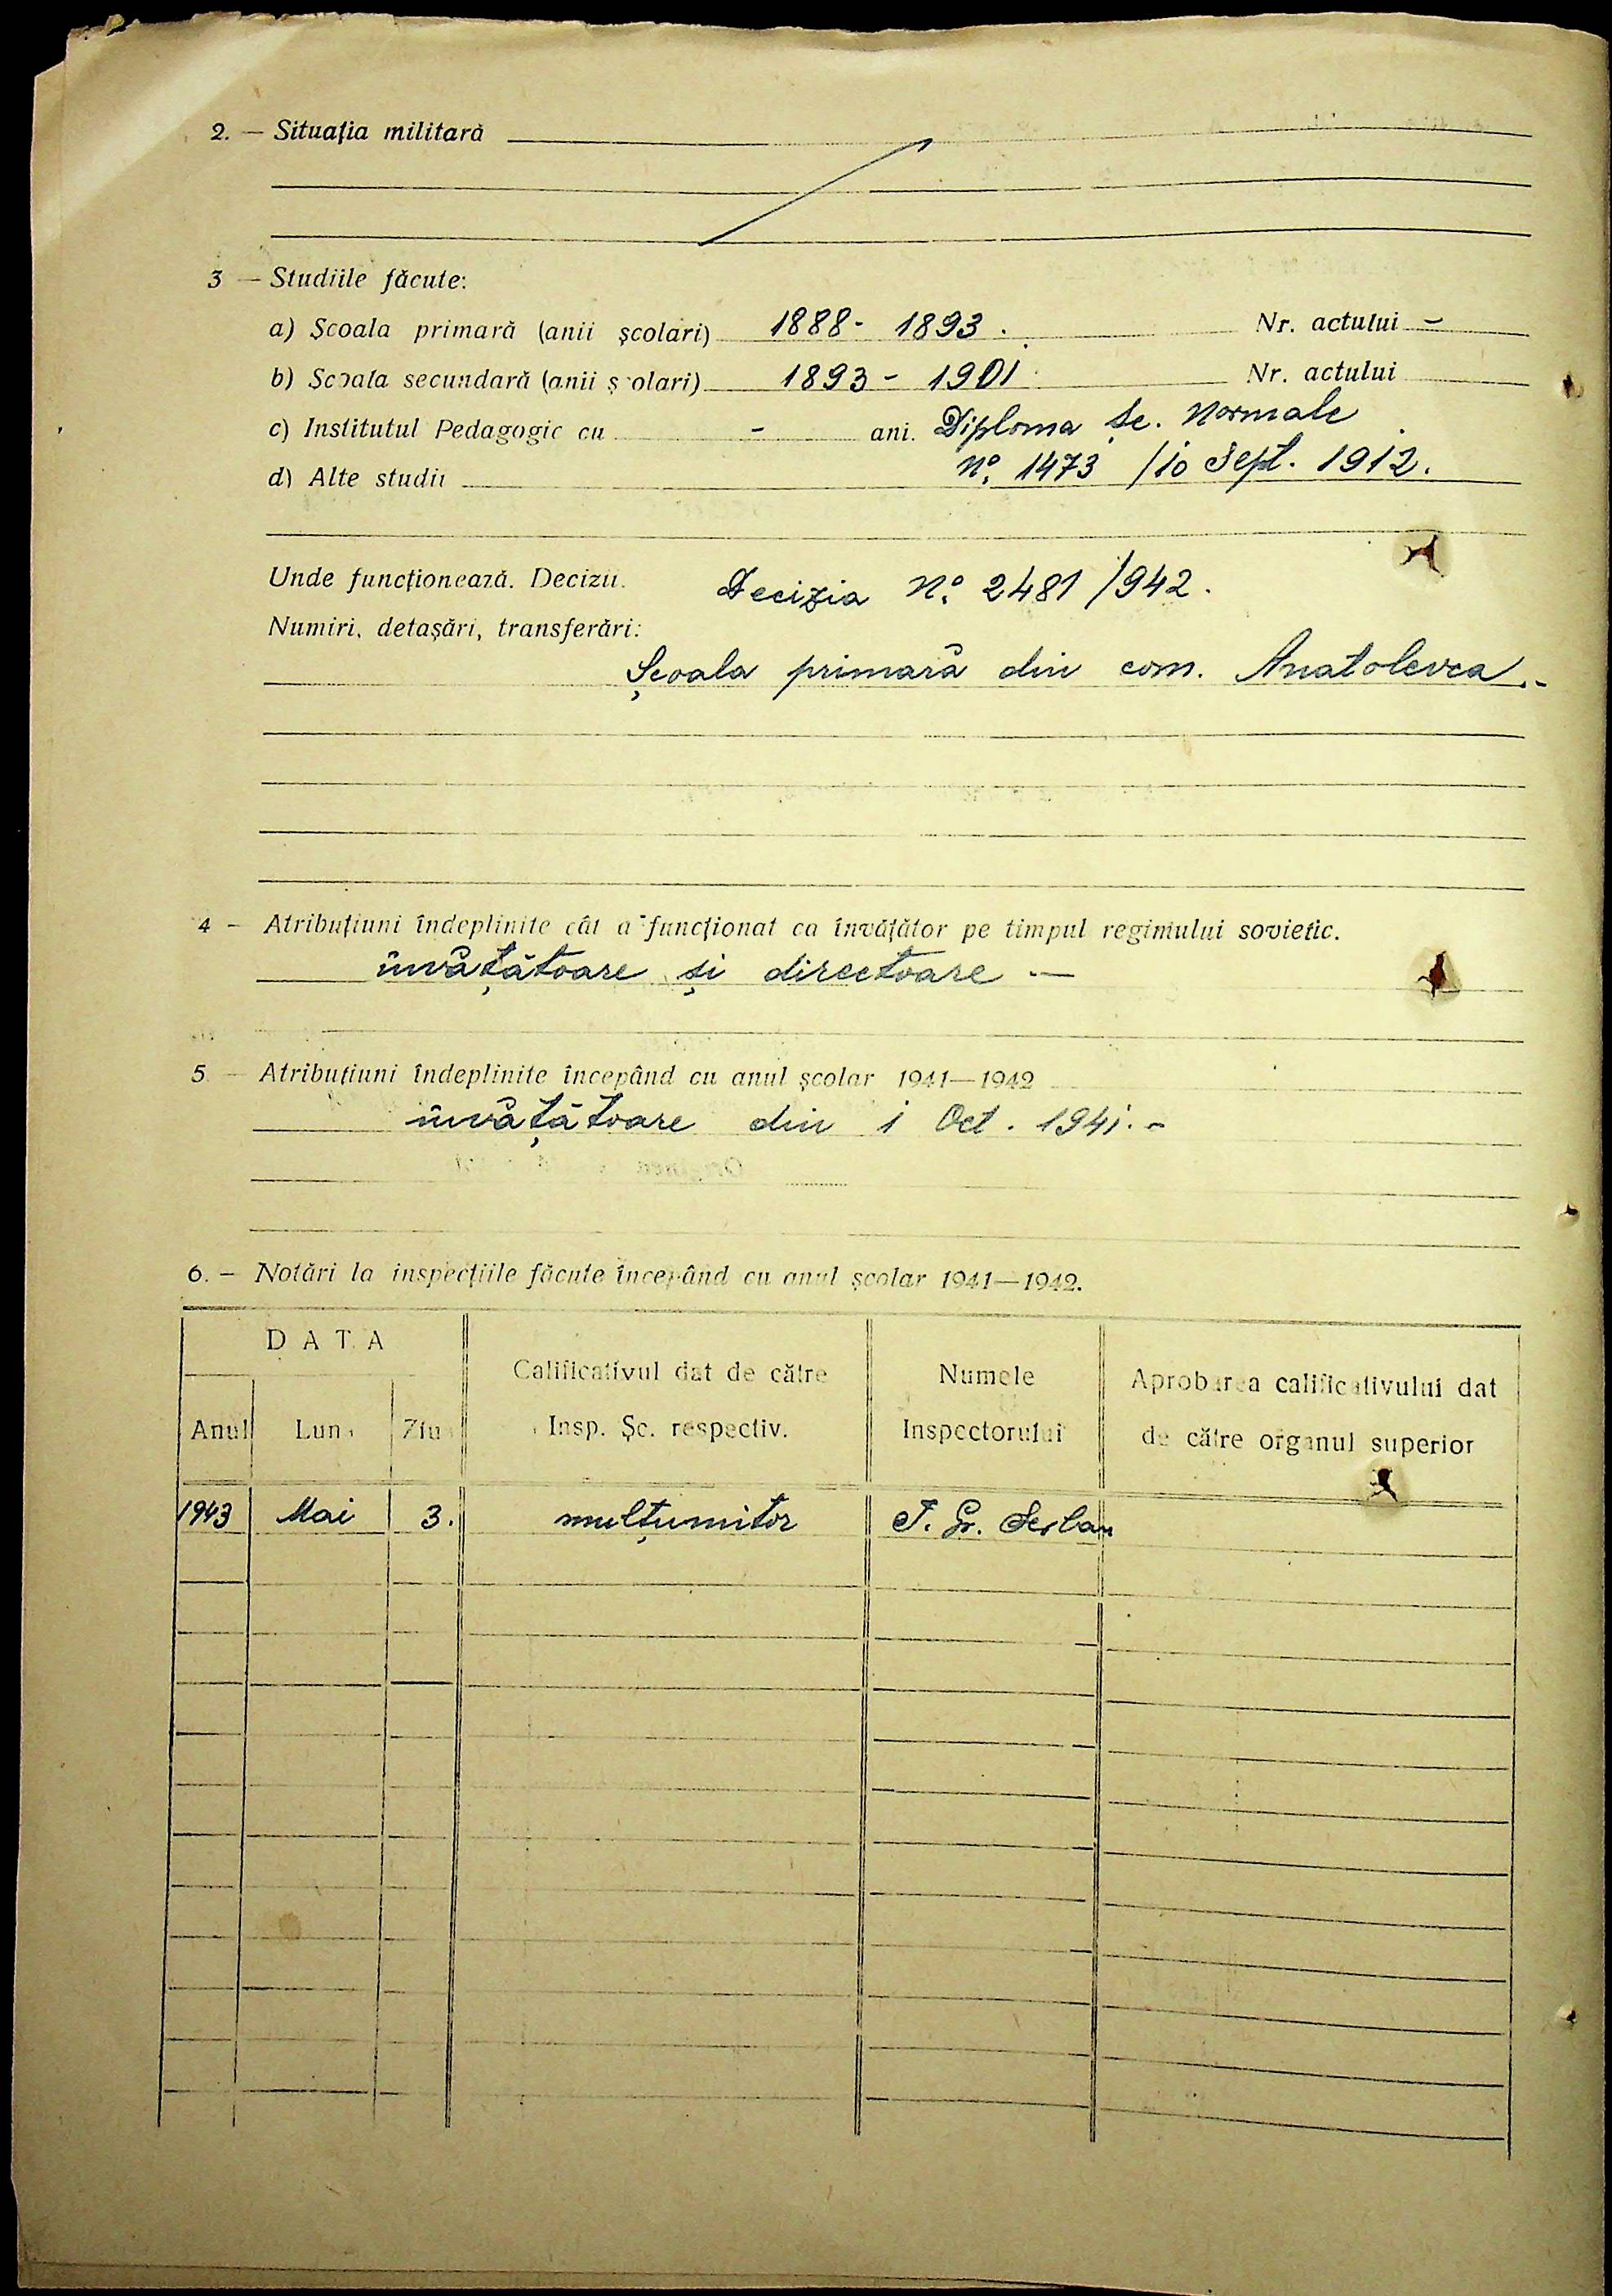 2. — Situația militară
3 — Studiile făcute:
a) Școala primară (anii școlari) 1888- 1893. Nr. actului -
b) Școala secundară (anii școlari) 1893- 1901 Nr. actului
c) Institutul Pedagogic cu - ani. Diploma Șc. Normale
d) Alte studii Nº 1473 /10 Sept. 1912.
Unde funcționează. Decizii. Decizia Nº 2481/942.
Numiri, detașări, transferări:
Școala primară din com. Anatolevca.-
4 — Atribuțiuni îndeplinite cât a funcționat ca învățător pe timpul regimului sovietic.
învățătoare și directoare —
5 — Atribuțiuni îndeplinite începând cu anul școlar 1941—1942
învățătoare din 1 Oct. 1941.-
6. — Notări la inspecțiile făcute începând cu anul școlar 1941—1942.
DATA
Calificativul dat de către Numele Aprobarea calificativului dat
Anul Luna Ziua Insp. Șc. respectiv. Inspectorului de către organul superior
1943 Mai 3. mulțumitor T. Gr. Serban